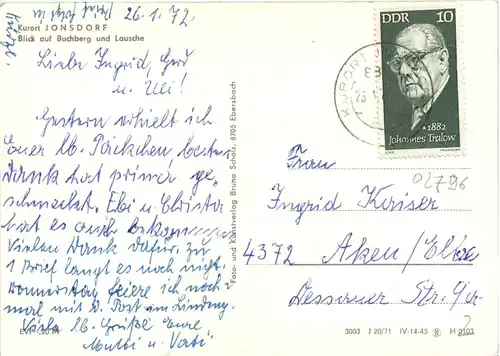 26.1.72.
Kurort JONSDORF
Blick auf Buchberg und Lausche
Liebe Ingrid, Gerd
u. Uli!
Gestern erhielt ich
Euer lb. Päckchen, besten
Dank hat prima ge-
schmeckt. Ebi u. Christa
hat es auch bekommen
Vielen Dank dafür. Zu
1 Brief langt es noch nicht.
Donnerstag feiere ich noch
mal mit d. Post im Lindeng.
Viele lb. Grüße Eure
Mutti u. Vati
Foto- und Kunstverlag Bruno Scholz, 8705 Ebersbach
DDR 10
*1882
Johannes Tralow
KURORT
Frau
Ingrid Kaiser
4372 Aken/Elbe
Dessauer Str.
3003 J 20/71 IV-14-45 H 0103